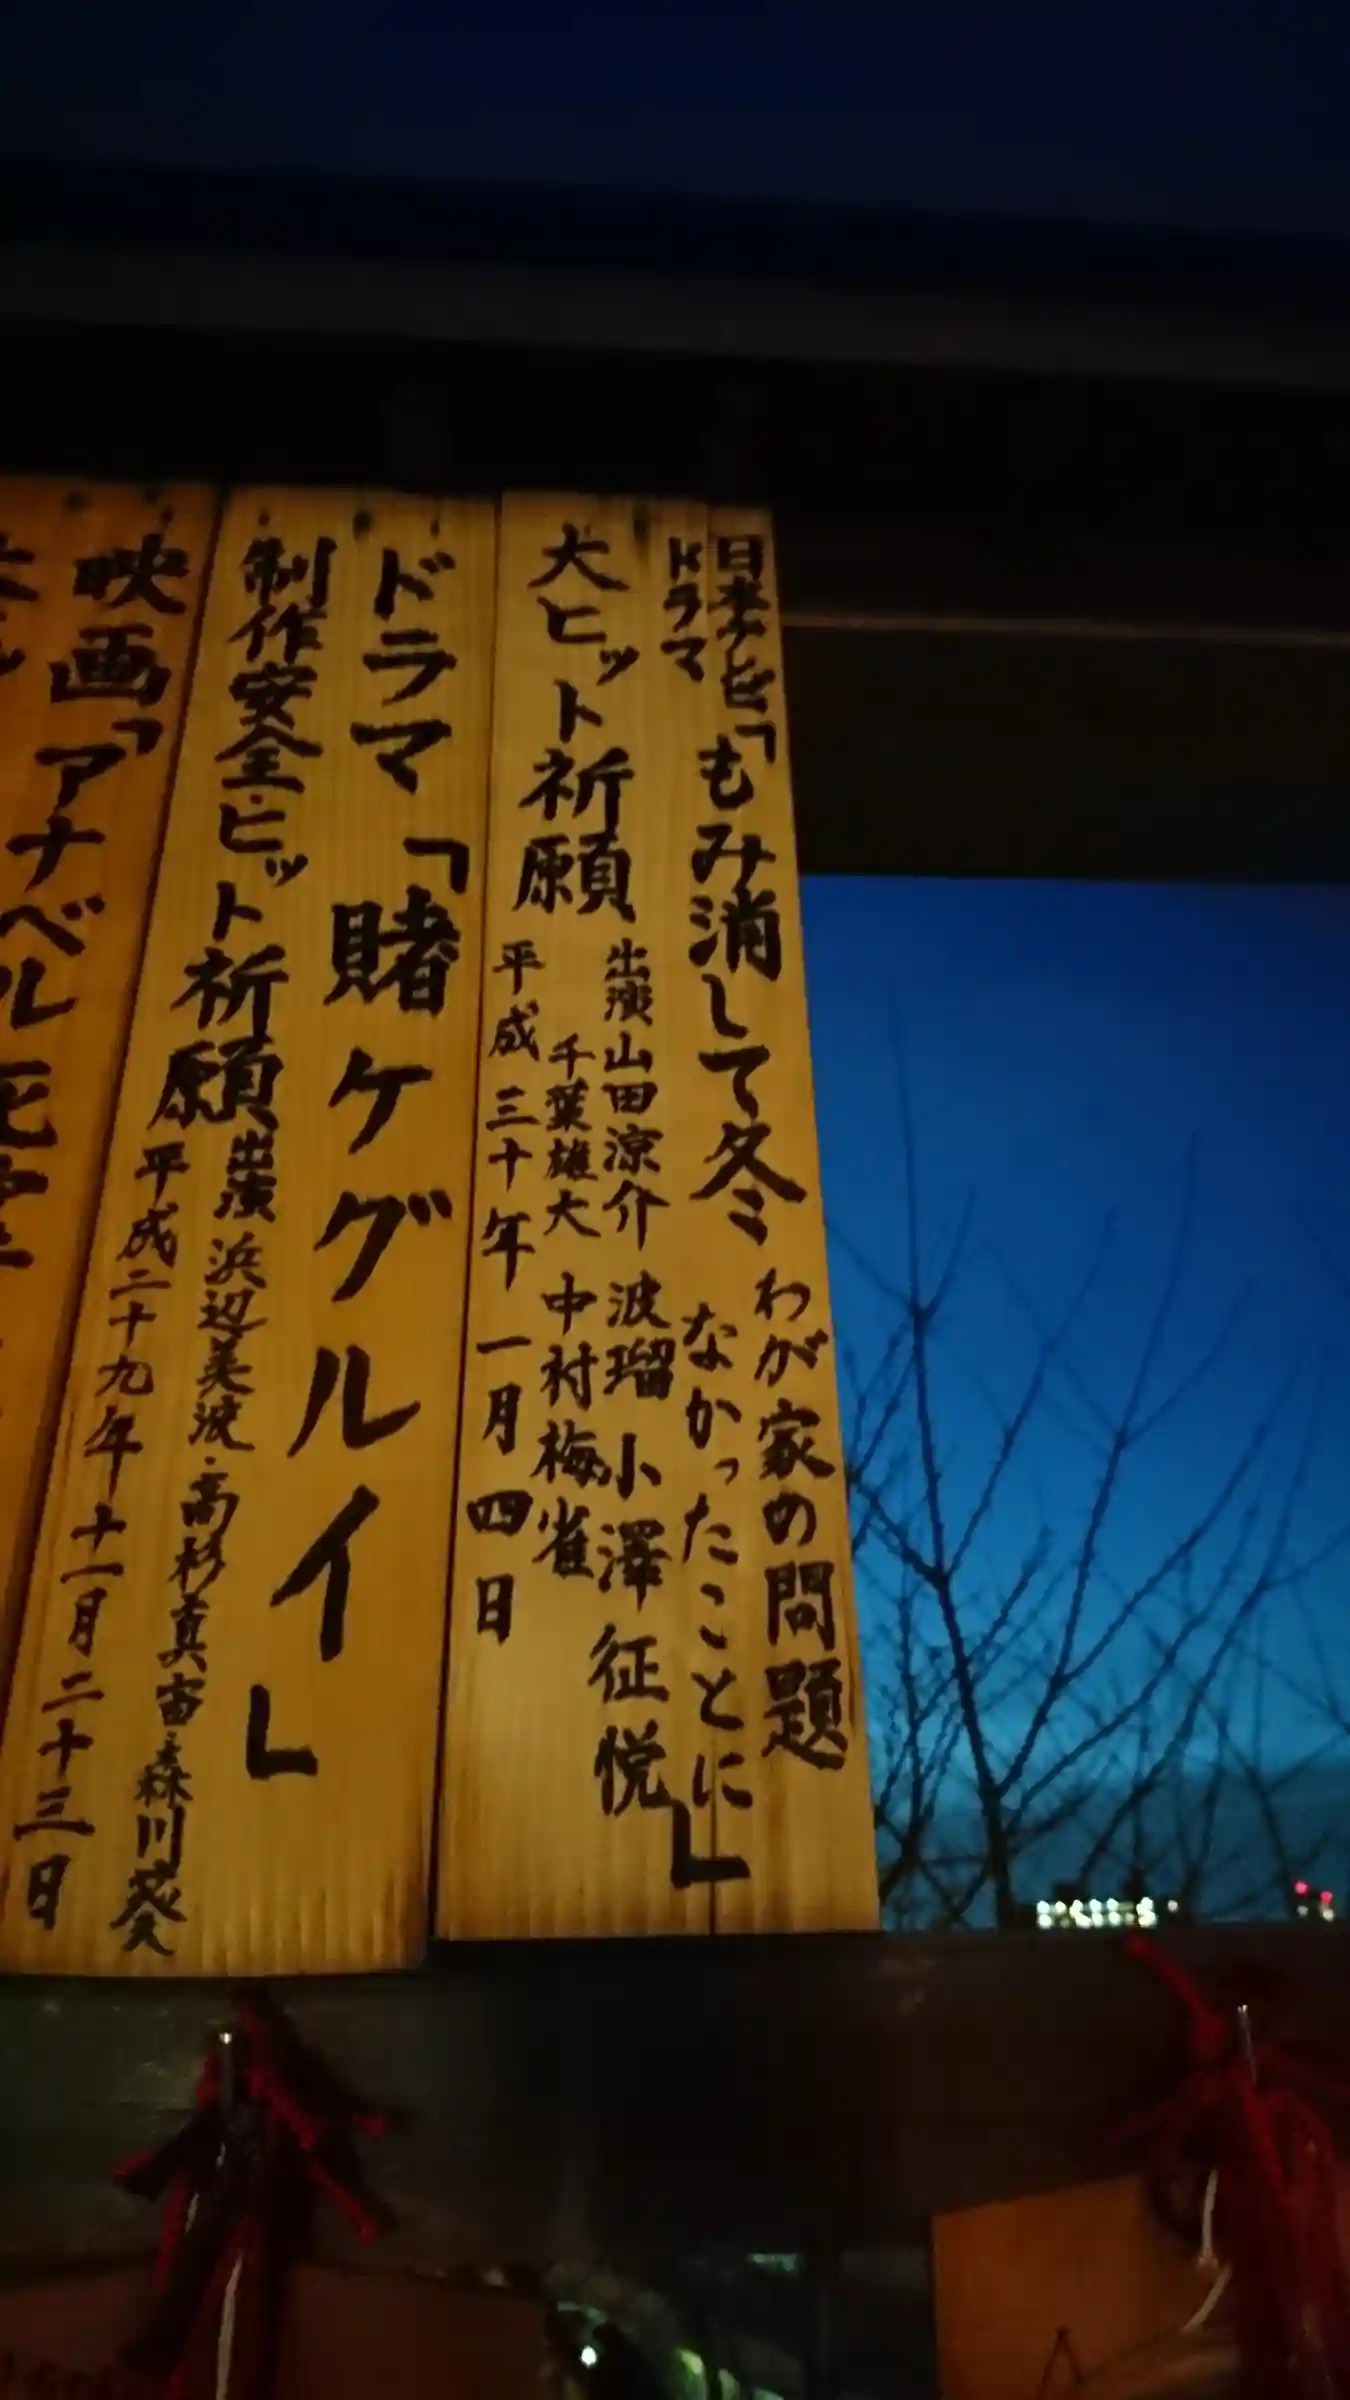 日本テレビ
ドラマ
「もみ消して冬
わが家の問題
なかったことに」
大ヒット祈願
出演山田涼介 波瑠 小澤征悦
千葉雄大 中村梅雀
平成三十年一月四日
ドラマ「賭ケグルイ」
制作安全・ヒット祈願
出演 浜辺美波・高杉真宙・森川葵
平成二十九年十一月二十三日
映画「アナベル死霊
大ヒッ